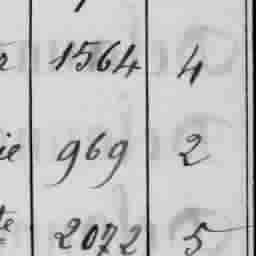 r 1564 4
ie 969 2
te 2072 5